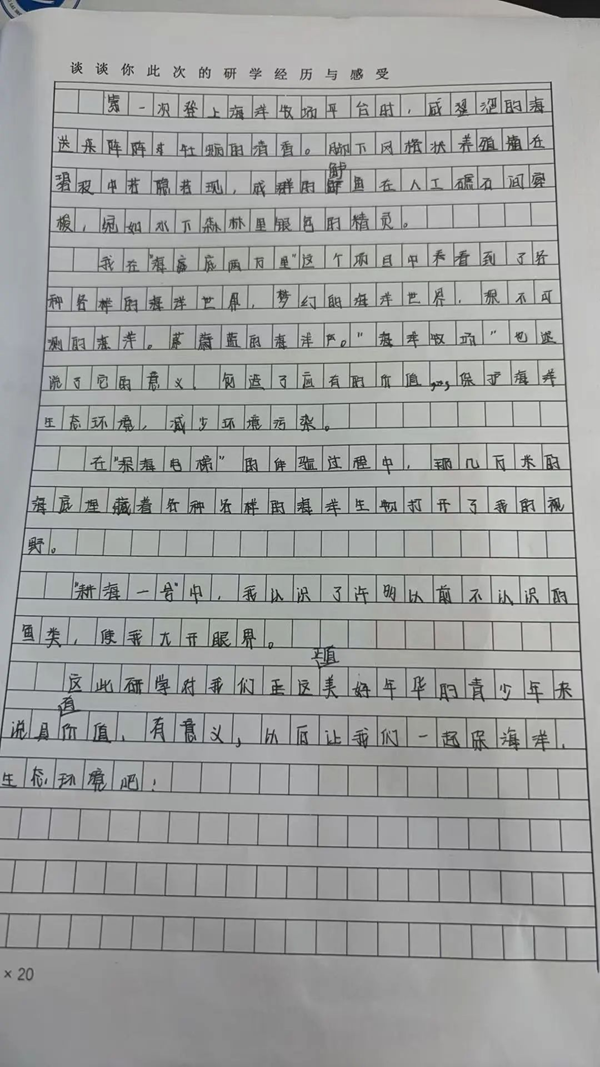 谈谈你此次的研学经历与感受
第一次登上海洋牧场平台时，咸湿涩的海
送来阵阵牡蛎的清香。脚下网横状养殖箱在
碧波中若隐若现，成群的鲈鱼在人工礁石间穿
梭，宛如水下森林里银色的精灵。
我在"海底两万里"这个项目中看到了各
种各样的海洋世界，梦幻的海洋世界，深不可
测的海洋。蔚蓝的海洋"海洋牧场"也述
说了它的意义，创造了应有的价值，保护海洋
生态环境，减少环境污染。
在"深海电梯"的体验过程中，那几万米的
海底埋藏着各种各样的海洋生物打开了我的视
野。
"耕海一号"中，我认识了许多以前不认识的
鱼类，使我大开眼界。
这此研学对我们正值这美好年华的青少年来
说具有价值，有意义，以后让我们一起保海洋，
生态环境吧！
× 20